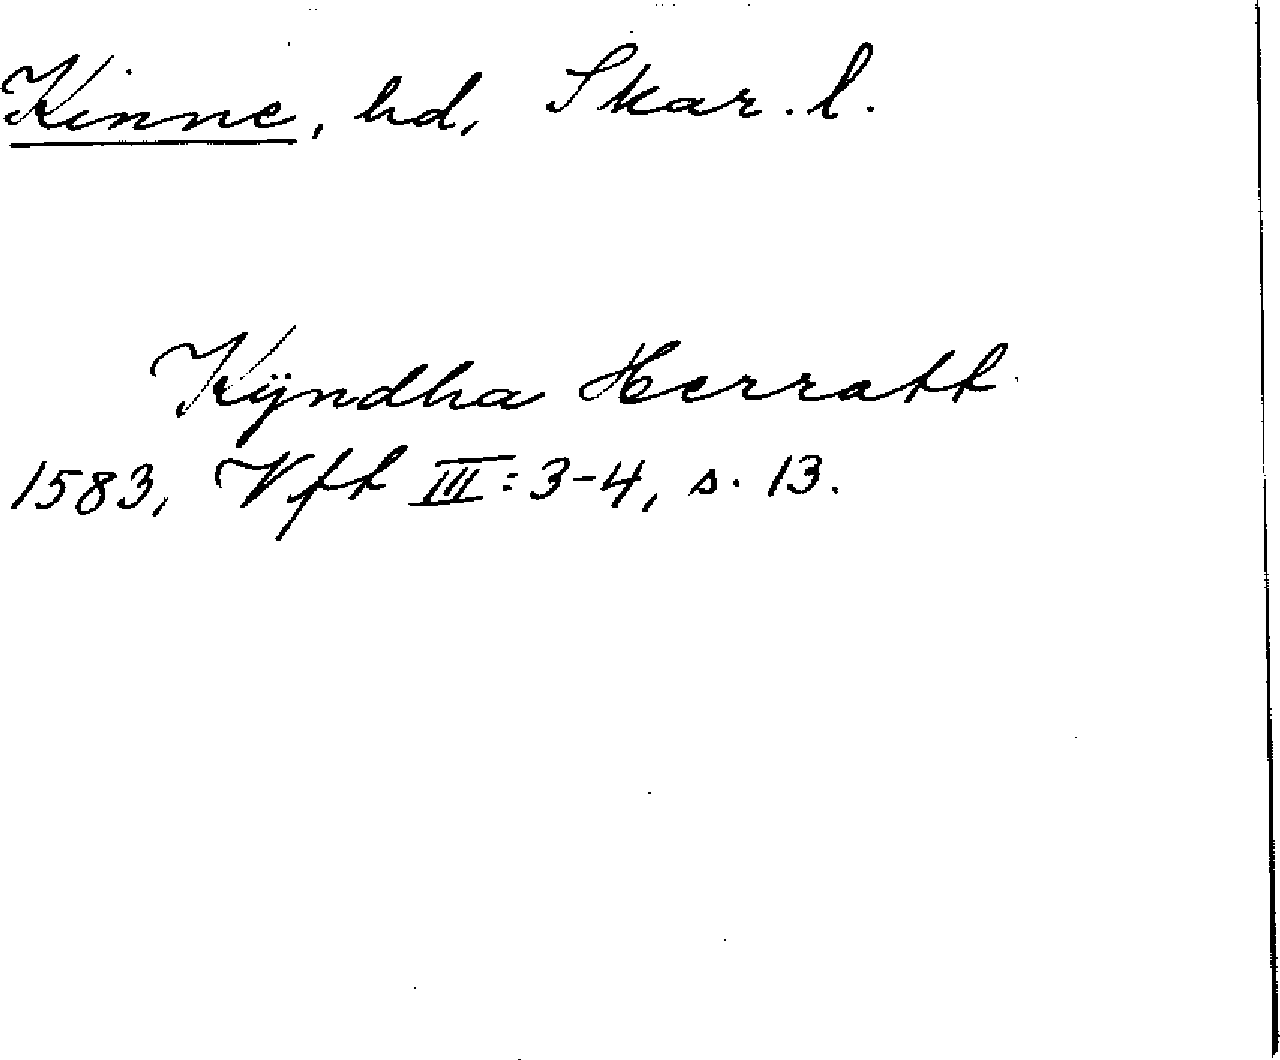 Kinne, hd, Skar. l.
Kÿndha Herratt
1583, Vft III: 3-4, s. 13.